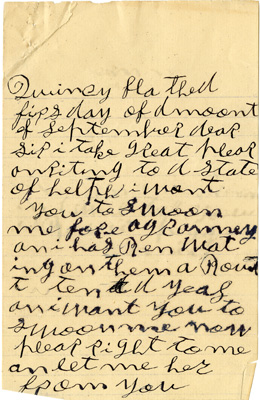 Quincy fla the d
firs day of d moont
of September dear
Sir i take great plear
on Riting to d State
of helth i want
You to Smoon
me for a garmey
an i has Ren Wat
ing on them a Rout
t ten d yeas
an i want You to
Smoon me now
plear Right to me
an let me her
from You